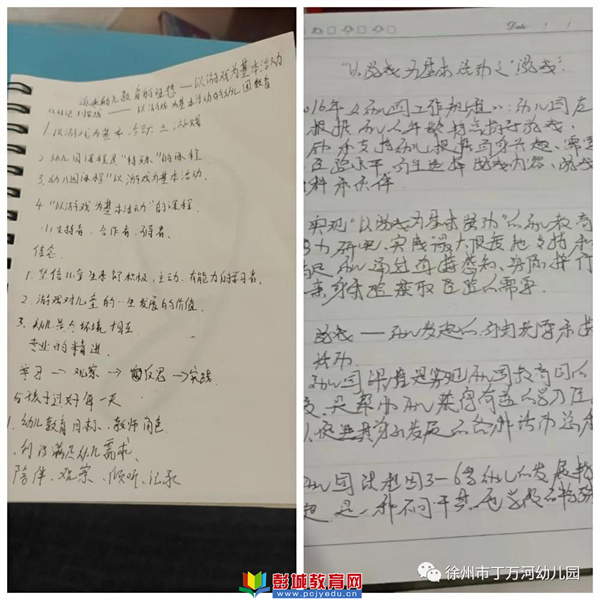 追求幼儿教育的理想——以游戏为基本活动
1.以游戏为基本活动之游戏
2.幼儿园课程是"特殊"的课程
3.幼儿园课程"以游戏为基本活动".
4."以游戏为基本活动"的课程.
(1)支持者、合作者、引导者.
信念
1.坚信儿童是积极、主动、有能力的学习者.
2.游戏对儿童的一生发展的价值.
3.幼儿是与环境相互
专业的精进
学习→观察→反思→实践
1.幼儿教育目标、教师角色
满足幼儿需求.
陪伴、观察、倾听、记录
Date
"以游戏为基本活动之"游戏":
016年《幼儿园工作规程》:幼儿园应
根据幼儿年龄特点指导游戏,
支持幼儿根据自身兴趣、需要
经验水平,自主选择游戏内容、游戏
料和伙伴.
实现"以游戏为基本活动"
幼儿通过直接感知、实际操作
亲身体验获取经验的需要.
游戏——幼儿发起的、自由
活动
幼儿园课程是实现幼儿园教育目的
帮助幼儿获得有益的学习经
幼儿园课程因3-6岁幼儿的发展
彭城教育网
www.pcjyedu.cn
徐州市丁万河幼儿园